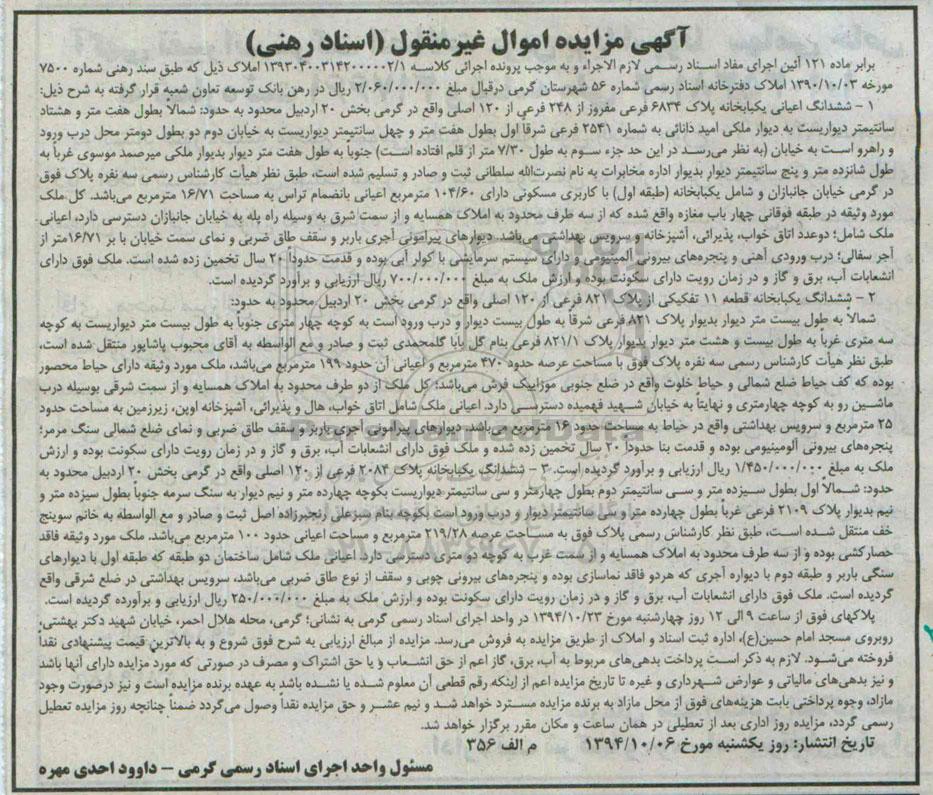 آگهی مزایده اموال غیرمنقول (اسناد رهنی)
برابر ماده ۱۲۱ آئین اجرای مفاد اسناد رسمی لازم الاجراء و به موجب پرونده اجرائی کلاسه ۱۳۹۳۰۴۰۰۳۱۴۲۰۰۰۰۰۲/۱ املاک ذیل که طبق سند رهنی شماره ۷۵۰۰
مورخه ۱۳۹۰/۱۰/۰۳ املاک دفترخانه اسناد رسمی شماره ۵۶ شهرستان گرمی درقبال مبلغ ۲/۰۶۰/۰۰۰/۰۰۰ ریال در رهن بانک توسعه تعاون شعبه قرار گرفته به شرح ذیل:
۱ - ششدانگ اعیانی یکبابخانه پلاک ۶۸۳۴ فرعی مفروز از ۲۴۸ فرعی از ۱۲۰ اصلی واقع در گرمی بخش ۲۰ اردبیل محدود به حدود: شمالاً بطول هفت متر و هشتاد
سانتیمتر دیواریست به دیوار ملکی امید ذاتائی به شماره ۲۵۴۱ فرعی شرقاً اول بطول هفت متر و چهل سانتیمتر دیواریست به خیابان دوم دو بطول دومتر محل درب ورود
و راهرو است به خیابان (به نظر می‌رسد در این حد جزء سوم به طول ۷/۳۰ متر از قلم افتاده است) جنوباً به طول هفت متر دیوار بدیوار ملکی میرصمد موسوی غرباً به
طول شانزده متر و پنج سانتیمتر دیوار بدیوار اداره مخابرات به نام نصرت‌الله سلطانی ثبت و صادر و تسلیم شده است، طبق نظر هیأت کارشناس رسمی سه نفره پلاک فوق
در گرمی خیابان جانبازان و شامل یکبابخانه (طبقه اول) با کاربری مسکونی دارای ۱۰۴/۶۰ مترمربع اعیانی بانضمام تراس به مساحت ۱۶/۷۱ مترمربع می‌باشد. کل ملک
مورد وثیقه در طبقه فوقانی چهار باب مغازه واقع شده که از سه طرف محدود به املاک همسایه و از سمت شرق به وسیله راه پله به خیابان جانبازان دسترسی دارد، اعیانی
ملک شامل؛ دوعدد اتاق خواب، پذیرائی، آشپزخانه و سرویس بهداشتی می‌باشد. دیوارهای پیرامونی آجری باربر و سقف طاق ضربی و نمای سمت خیابان با بر ۱۶/۷۱متر از
آجر سفالی؛ درب ورودی آهنی و پنجره‌های بیرونی آلمینیومی و دارای سیستم سرمایشی با کولر آبی بوده و قدمت حدوداً ۲۰ سال تخمین زده شده است. ملک فوق دارای
انشعابات آب، برق و گاز و در زمان رویت دارای سکونت بوده و ارزش ملک به مبلغ ۷۰۰/۰۰۰/۰۰۰ ریال ارزیابی و برآورد گردیده است.
۲ - ششدانگ یکبابخانه قطعه ۱۱ تفکیکی از پلاک ۸۲۱ فرعی از ۱۲۰ اصلی واقع در گرمی بخش ۲۰ اردبیل محدود به حدود:
شمالاً به طول بیست متر دیوار بدیوار پلاک ۸۲۱ فرعی شرقاً به طول بیست دیوار و درب ورود است به کوچه چهار متری جنوباً به طول بیست متر دیواریست به کوچه
سه متری غرباً به طول بیست و هشت متر دیوار بدیوار پلاک ۸۲۱/۱ فرعی بنام گل بابا گلمحمدی ثبت و صادر و مع الواسطه به آقای محبوب پاشاپور منتقل شده است،
طبق نظر هیأت کارشناس رسمی سه نفره پلاک فوق با مساحت عرصه حدود ۴۷۰ مترمربع و اعیانی آن حدود ۱۹۹ مترمربع می‌باشد، ملک مورد وثیقه دارای حیاط محصور
بوده که کف حیاط ضلع شمالی و حیاط خلوت واقع در ضلع جنوبی موزاییک فرش می‌باشد؛ کل ملک از دو طرف محدود به املاک همسایه و از سمت شرقی بوسیله درب
ماشین رو به کوچه چهارمتری و نهایتاً به خیابان شهید فهمیده دسترسی دارد. اعیانی ملک شامل اتاق خواب، هال و پذیرائی، آشپزخانه اوپن، زیرزمین به مساحت حدود
۲۵ مترمربع و سرویس بهداشتی واقع در حیاط به مساحت حدود ۱۶ مترمربع می‌باشد. دیوارهای پیرامونی آجری باربر و سقف طاق ضربی و نمای ضلع شمالی سنگ مرمر؛
پنجره‌های بیرونی آلومینیومی بوده و قدمت بنا حدوداً ۲۰ سال تخمین زده شده و ملک فوق دارای انشعابات آب، برق و گاز و در زمان رویت دارای سکونت بوده و ارزش
ملک به مبلغ ۱/۴۵۰/۰۰۰/۰۰۰ ریال ارزیابی و برآورد گردیده است. ۳ - ششدانگ یکبابخانه پلاک ۲۰۸۴ فرعی از ۱۲۰ اصلی واقع در گرمی بخش ۲۰ اردبیل محدود به
حدود: شمالاً اول بطول سیزده متر و سی سانتیمتر دوم بطول چهارمتر و سی سانتیمتر دیواریست بکوچه چهارده متر و نیم دیوار به سنگ سرمه جنوباً بطول سیزده متر و
نیم بدیوار پلاک ۲۱۰۹ فرعی غرباً بطول چهارده متر و سی سانتیمتر دیوار و درب ورود است بکوچه بنام سبزعلی رنجبرزاده اصل ثبت و صادر و مع الواسطه به خانم سوینج
خف منتقل شده است، طبق نظر کارشناس رسمی پلاک فوق به مساحت عرصه ۲۱۹/۲۸ مترمربع و مساحت اعیانی حدود ۱۰۰ مترمربع می‌باشد. ملک مورد وثیقه فاقد
حصارکشی بوده و از سه طرف محدود به املاک همسایه و از سمت غرب به کوچه دو متری دسترسی دارد. اعیانی ملک شامل ساختمان دو طبقه که طبقه اول با دیوارهای
سنگی باربر و طبقه دوم با دیواره آجری که هردو فاقد نماسازی بوده و پنجره‌های بیرونی چوبی و سقف از نوع طاق ضربی می‌باشد، سرویس بهداشتی در ضلع شرقی واقع
گردیده است. ملک فوق دارای انشعابات آب، برق و گاز و در زمان رویت دارای سکونت بوده و ارزش ملک به مبلغ ۲۵۰/۰۰۰/۰۰۰ ریال ارزیابی و برآورده گردیده است.
پلاکهای فوق از ساعت ۹ الی ۱۲ روز چهارشنبه مورخ ۱۳۹۴/۱۰/۲۳ در واحد اجرای اسناد رسمی گرمی به نشانی؛ گرمی، محله هلال احمر، خیابان شهید دکتر بهشتی،
روبروی مسجد امام حسین(ع)، اداره ثبت اسناد و املاک از طریق مزایده به فروش می‌رسد. مزایده از مبالغ ارزیابی به شرح فوق شروع و به بالاترین قیمت پیشنهادی نقداً
فروخته می‌شود. لازم به ذکر است پرداخت بدهی‌های مربوط به آب، برق، گاز اعم از حق انشعاب و یا حق اشتراک و مصرف در صورتی که مورد مزایده دارای آنها باشد
و نیز بدهی‌های مالیاتی و عوارض شهرداری و غیره تا تاریخ مزایده اعم از اینکه رقم قطعی آن معلوم شده یا نشده باشد به عهده برنده مزایده است و نیز درصورت وجود
مازاد، وجوه پرداختی بابت هزینه‌های فوق از محل مازاد به برنده مزایده مسترد خواهد شد و نیم عشر و حق مزایده نقداً وصول می‌گردد ضمناً چنانچه روز مزایده تعطیل
رسمی گردد، مزایده روز اداری بعد از تعطیلی در همان ساعت و مکان مقرر برگزار خواهد شد.
تاریخ انتشار: روز یکشنبه مورخ ۱۳۹۴/۱۰/۰۶ م الف ۳۵۶
مسئول واحد اجرای اسناد رسمی گرمی - داوود احدی مهره